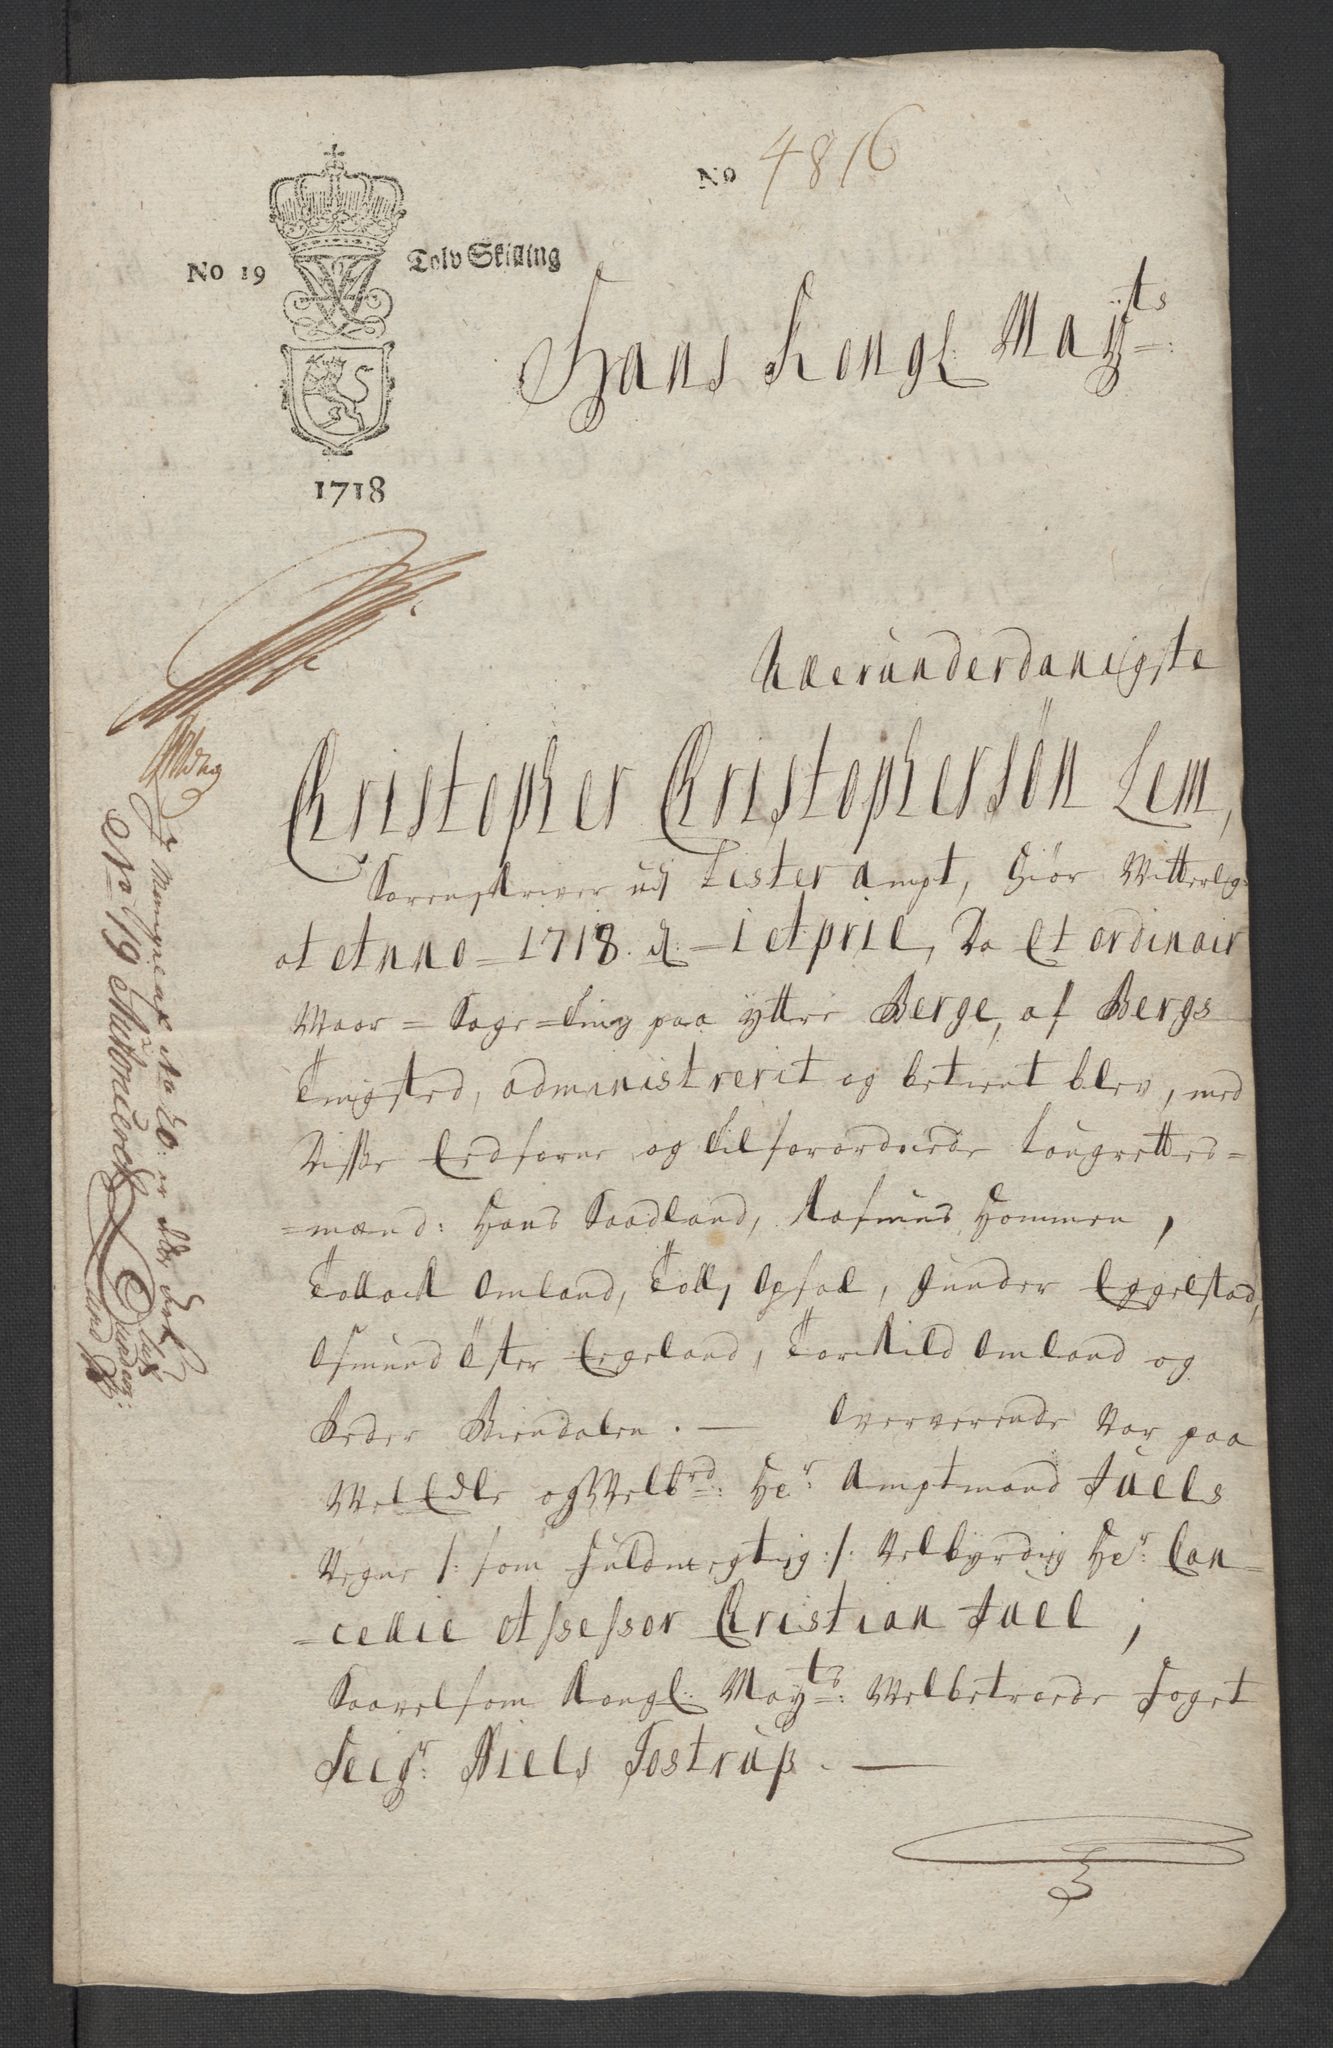 No 4816
No 19 Tolv Skilling
1718
Hans Kongl: Maÿts:
Allerunderdanigste
Christopher Christophersön Lem,
Sorenskriver udj Lister Ampt, Giör Witterlig:
at Anno = 1718. d: - 1 April, Da Et ordinair
Waar = Sage = Ting paa ÿttre Berge, af Bergs
Tingsted, administrerit og betient blev, med
Disse Eedsorne og Tilforordnede Laugrettes=
=mænd: Hans Saadland, Rasmus Hommen,
Tollack Omland, Tolle Opsal, Gunder Eggelstad,
Osmund Öster Ergeland, Torkild Omland og
Peder Biendalen. — Oververende Var paa
WelEdle og Welbrd: Hr: Amptmand Juels
Vegne /: som Fuldmegtig :/ Velbyrdig Hr: Can=
=cellie Assessor Christian Juel,
Saavelsom Kongl: Maÿts: Welbetroede Foget
Seigr: Niels Tostrup. —
J Mangel af No 20: er dette
No 19 Authoricerets